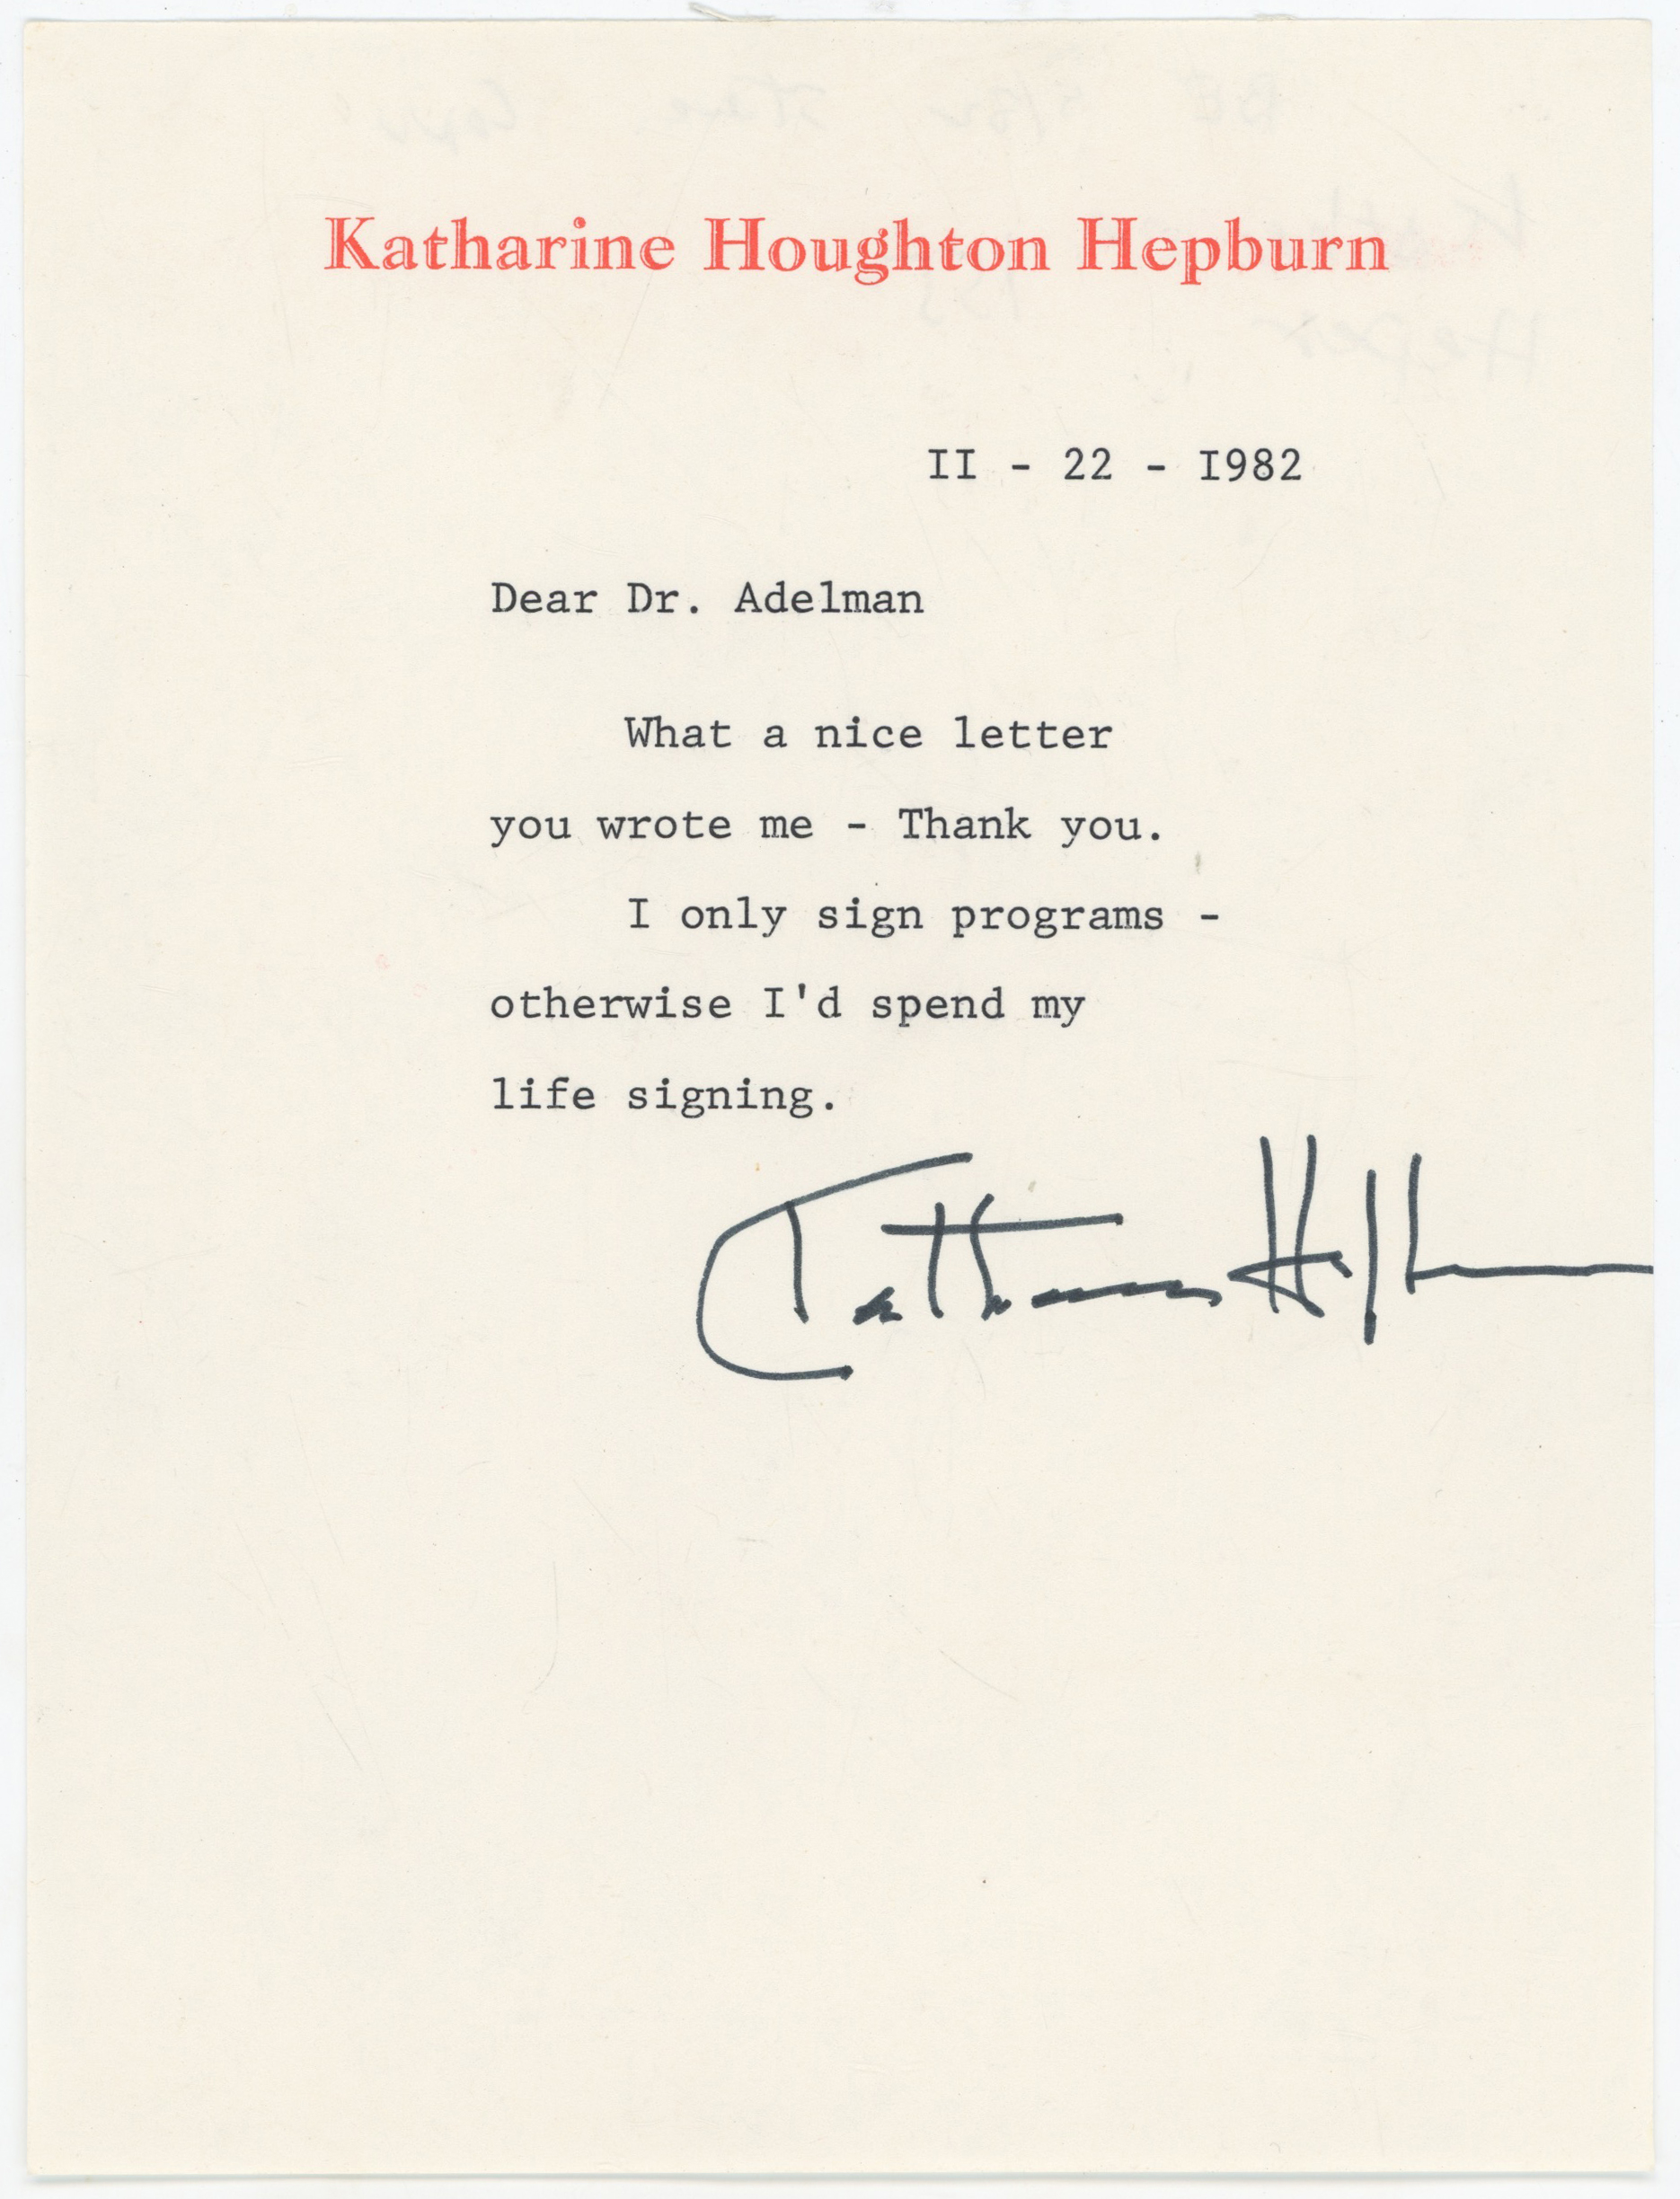 Katharine Houghton Hepburn
II - 22 - I982
Dear Dr. Adelman
What a nice letter
you wrote me - Thank you.
I only sign programs -
otherwise I'd spend my
life signing.
Katharine Hepburn